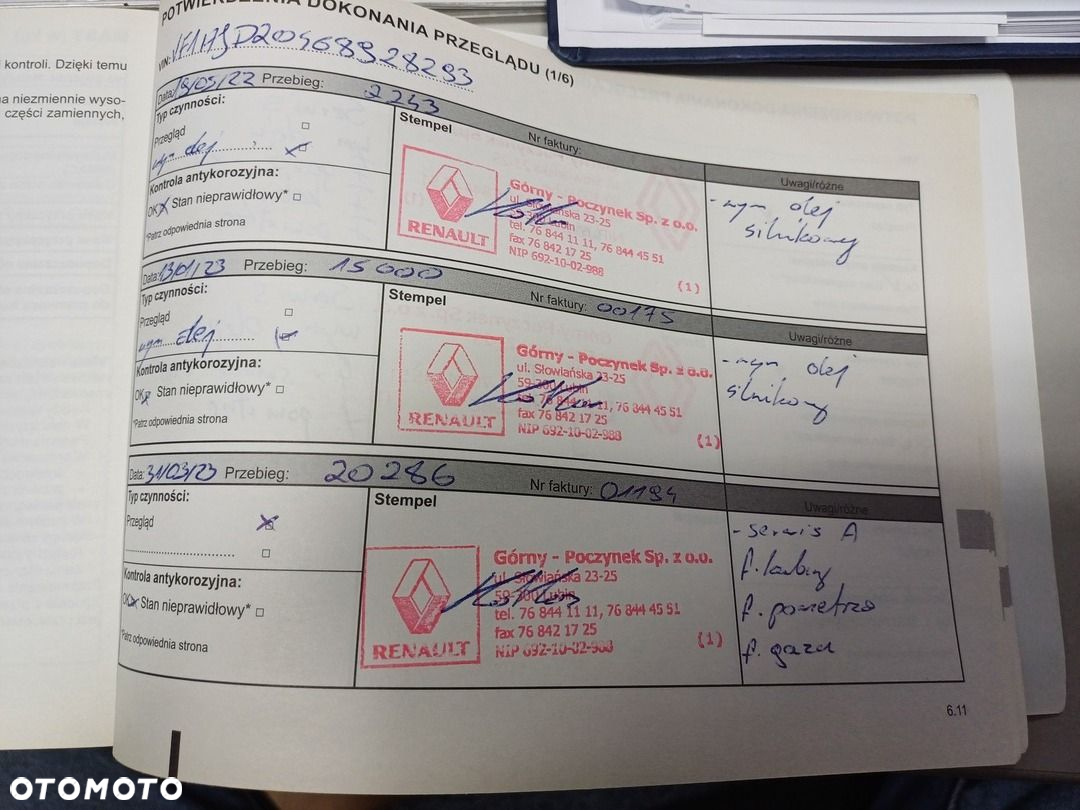 i kontroli. Dzięki temu
na niezmiennie wyso-
części zamiennych,
POTWIERDZENIA DOKONANIA PRZEGLĄDU (1/6)
VIN:
Data: 19/05/22 Przebieg: 2243
Nr faktury:
Uwagi/różne
Typ czynności:
Przegląd
wym olej
Kontrola antykorozyjna:
OK Stan nieprawidłowy*
*Patrz odpowiednia strona
Stempel
RENAULT
Górny - Poczynek Sp. z o.o.
ul. Słowiańska 23-25
59-300 Lubin
tel. 76 844 11 11, 76 844 45 51
fax 76 842 17 25
NIP 692-10-02-988
(1)
- wym olej
silnikowy
Data: 13/01/23 Przebieg: 15000
Nr faktury: 00175
Uwagi/różne
Typ czynności:
Przegląd
wym olej
Kontrola antykorozyjna:
OK Stan nieprawidłowy*
*Patrz odpowiednia strona
Stempel
RENAULT
Górny - Poczynek Sp. z o.o.
ul. Słowiańska 23-25
59-300 Lubin
tel. 76 844 11 11, 76 844 45 51
fax 76 842 17 25
NIP 692-10-02-988
(1)
- wym olej
silnikowy
Data: 31/03/23 Przebieg: 20286
Nr faktury: 01194
Uwagi/różne
Typ czynności:
Przegląd
Kontrola antykorozyjna:
OK Stan nieprawidłowy*
*Patrz odpowiednia strona
Stempel
RENAULT
Górny - Poczynek Sp. z o.o.
ul. Słowiańska 23-25
59-300 Lubin
tel. 76 844 11 11, 76 844 45 51
fax 76 842 17 25
NIP 692-10-02-988
(1)
- serwis A
f. kabiny
f. powietrza
f. gazu
6.11
OTOMOTO